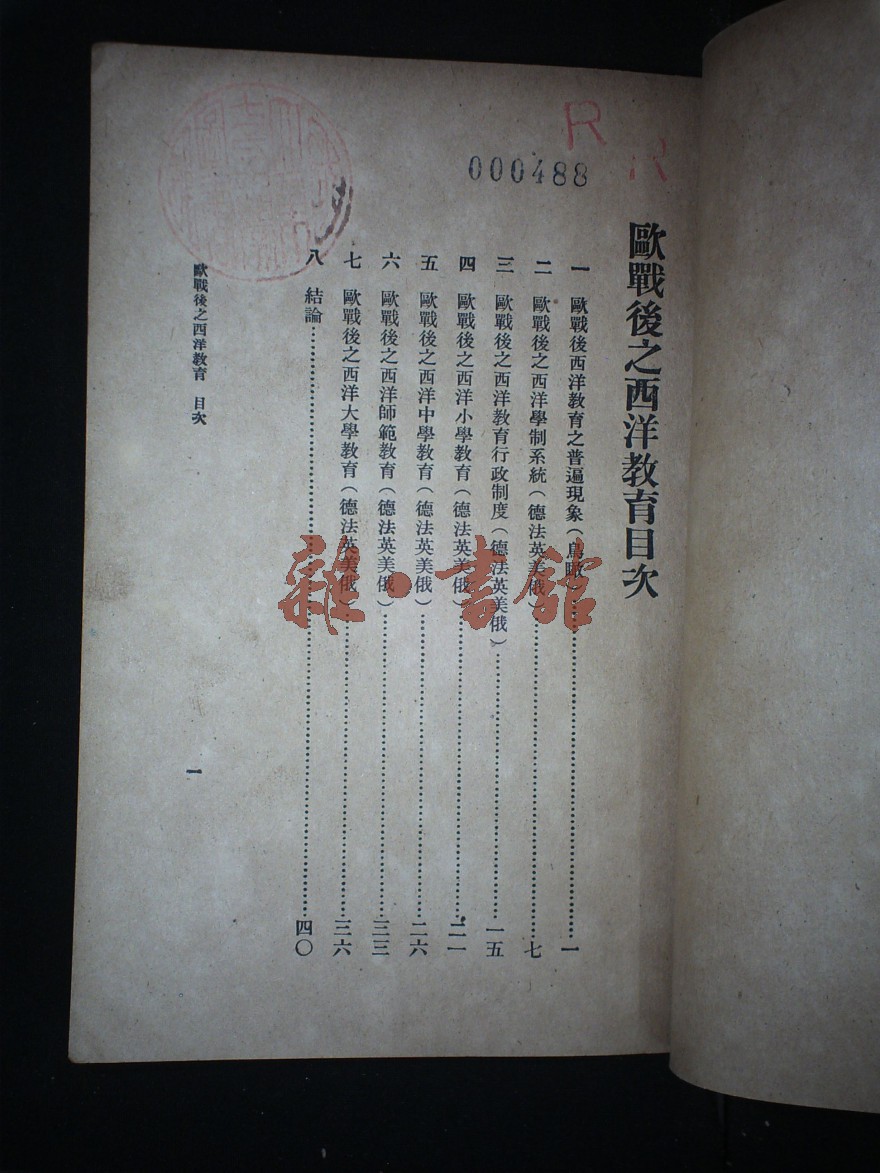 000488
R
歐戰後之西洋教育目次
一 歐戰後西洋教育之普遍現象（鳥瞰）……一
二 歐戰後之西洋學制系統（德法英美俄）……七
三 歐戰後之西洋教育行政制度（德法英美俄）……一五
四 歐戰後之西洋小學教育（德法英美俄）……二一
五 歐戰後之西洋中學教育（德法英美俄）……二六
六 歐戰後之西洋師範教育（德法英美俄）……三三
七 歐戰後之西洋大學教育（德法英美俄）……三六
八 結論……四〇
歐戰後之西洋教育 目次
一
雜·書館